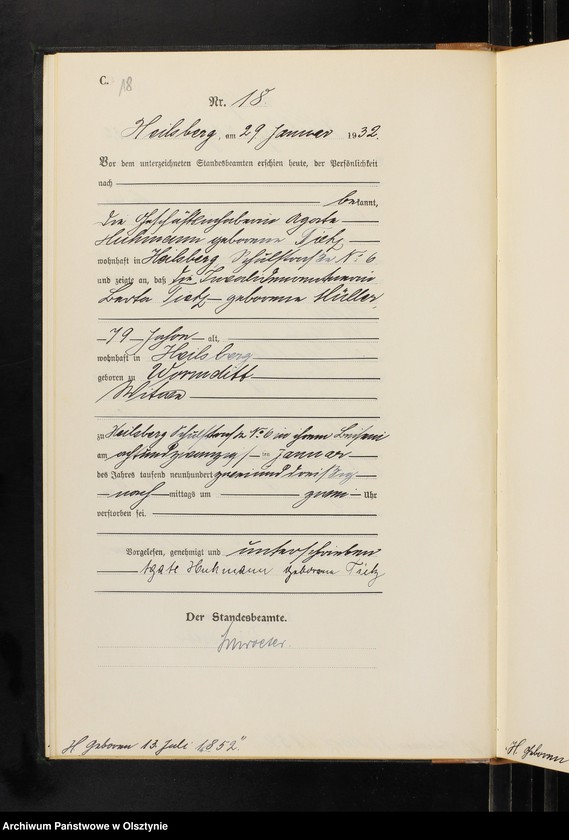 C. 18
Nr. 18
Heilsberg, am 29 Januar 1932.
Vor dem unterzeichneten Standesbeamten erschien heute, der Persönlichkeit
nach
bekannt,
die Geschäftsinhaberin Agathe
Huhmann geborene Tietz
wohnhaft in Heilsberg Schulstraße No 6
und zeigte an, daß die Invalidenrentnerin
Berta Tietz geborene Müller,
79 Jahre alt,
wohnhaft in Heilsberg
geboren zu Wormditt
Witwe
zu Heilsberg Schulstraße No 6 in ihrem Beisein
am achtundzwanzigsten Januar
des Jahres tausend neunhundert zweiunddreißig
nach mittags um zwei Uhr
verstorben sei.
Vorgelesen, genehmigt und unterschrieben
geborene Tietz
Der Standesbeamte.
geboren 13. Juli 1852"
geboren
Archiwum Państwowe w Olsztynie